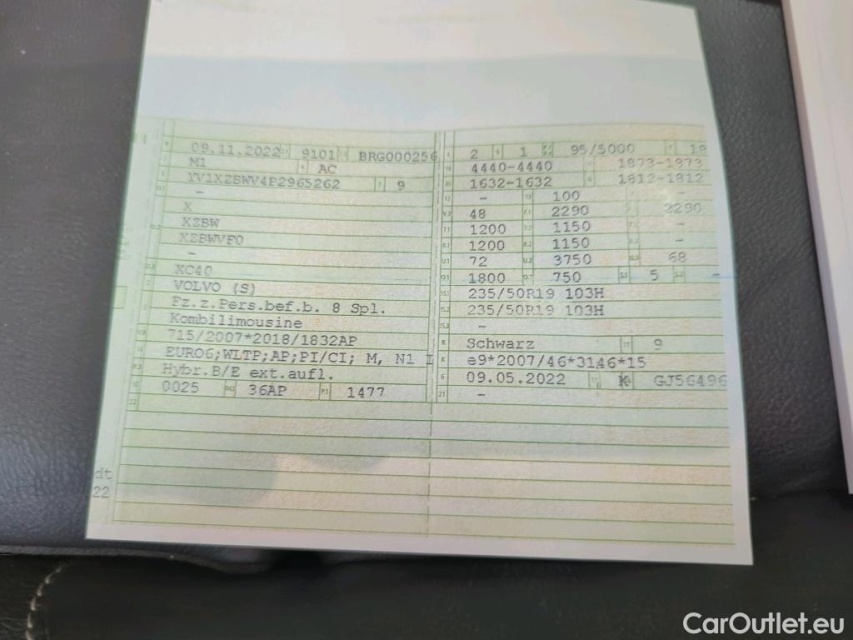 09.11.2022 9101 BRG000256
M1 AC
YV1XZBWV4P2965262 9
-
X
XZBW
XZBWVF0
-
XC40
VOLVO (S)
Fz.z.Pers.bef.b. 8 Spl.
Kombilimousine
715/2007*2018/1832AP
EURO6;WLTP;AP;PI/CI; M, N1 I
Hybr.B/E ext.aufl.
0025 36AP 1477
2 1 95/5000 18
4440-4440 1873-1873
1632-1632 1812-1812
- 100
48 2290 2290
1200 1150 -
1200 1150 -
72 3750 68
1800 750 5 -
235/50R19 103H
235/50R19 103H
-
Schwarz 9
e9*2007/46*3146*15
09.05.2022 K GJ56496
-
dt
22
CarOutlet.eu